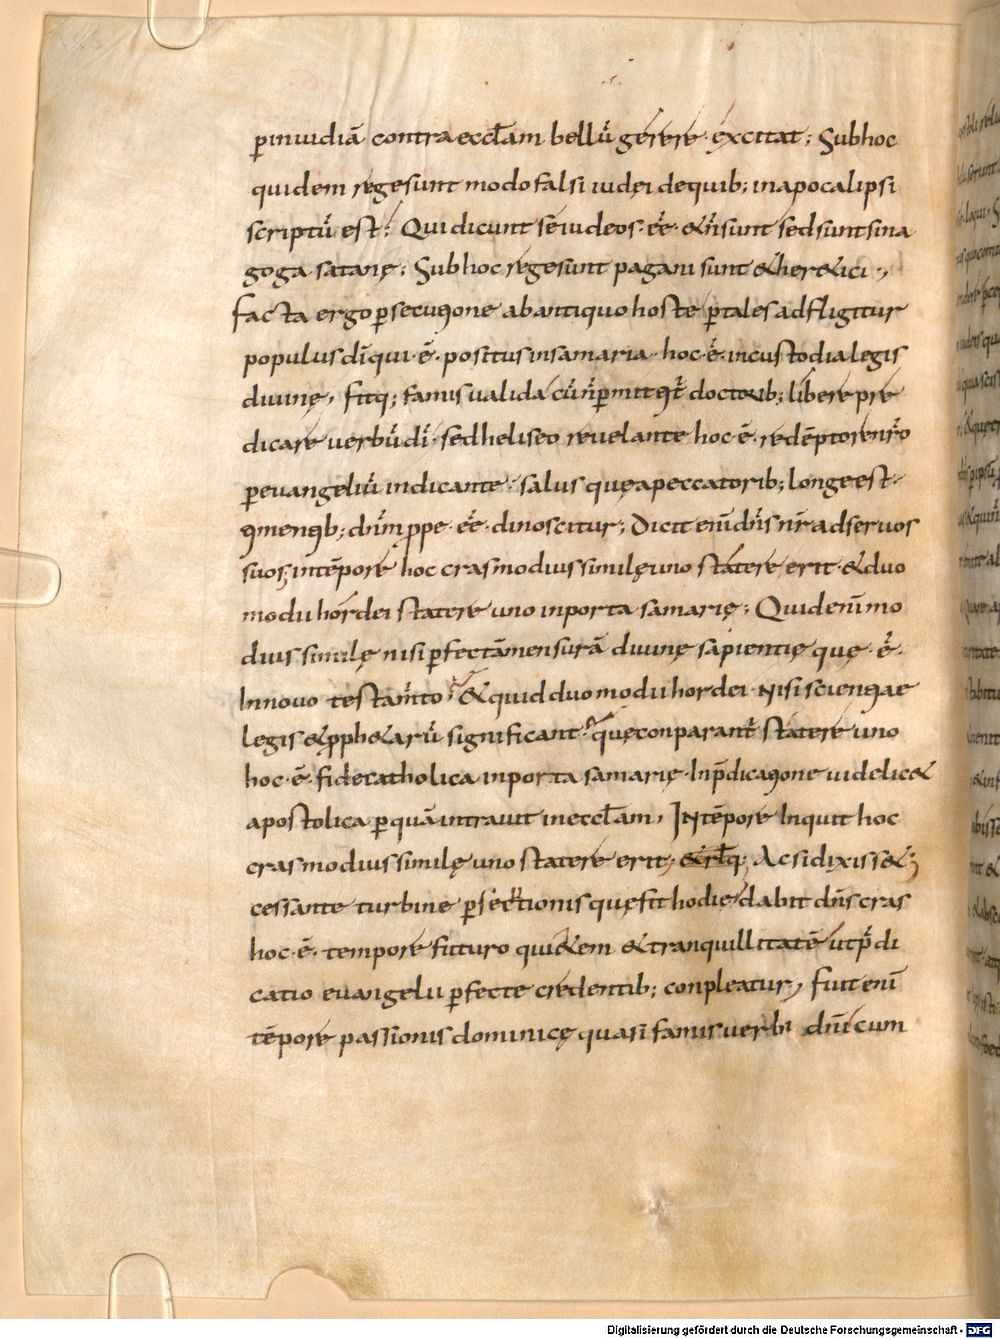 ꝑinuidiā contra eccl̄am bellū gerere · excitat ; Sub hoc
quidem rege sunt modo falsi iudęi de quib; in apocalipsi
scriptū est ; Qui dicunt sē iudeos · eē · & n̄ sunt sed sunt sina
goga satanę ; Sub hoc rege sunt pagani sunt & her&ici ;
facta ergo ꝑsecutione ab antiquo hoste ꝑ tales adfligitur
populus dī qui · ē · positus in samaria · hoc · ē · in custodia legis
diuinę , fitq; famis ualida cū n̄ ꝑmittit̄ doctorib; libere pre
dicare uerbū dī · sed heliseo reuelante hoc · ē · redēptore nr̄o
ꝑ euangeliū indicante · salus quę a peccatorib; longe est ·
ꝯmentib; dn̄m ꝓpe · eē · dinoscitur ; Dicit enī dn̄s nr̄ ad seruos
suos ; in tēpore hoc cras modius similę uno statere erit · & duo
modii hordei statere uno in porta samarię ; Quid enī mo
dius similę nisi ꝑfectā mensurā diuinę sapientię quę · ē ·
In nouo testam̄to ; & quid duo modii hordei · nisi scientiae
legis & ꝓph&arū significant ; quę conparant̄ statere uno
hoc · ē · fide catholica in porta samarię · In p̄dicatione uidelic&
apostolica ꝑ quā intrauit in eccl̄am , IN tēpore Inquit hoc
cras modius similę uno statere erit ; & rl̄q; Ac si dixiss& ;
cessante turbine ꝑsecutionis quę fit hodie dabit dn̄s cras
hoc · ē · tempore futuro qui&em & tranquillitatē ut p̄di
catio euangelii ꝑfecte credentib; conpleatur , Fuit enī
tēpore passionis dominicę quasi famis uerbi dn̄i cum